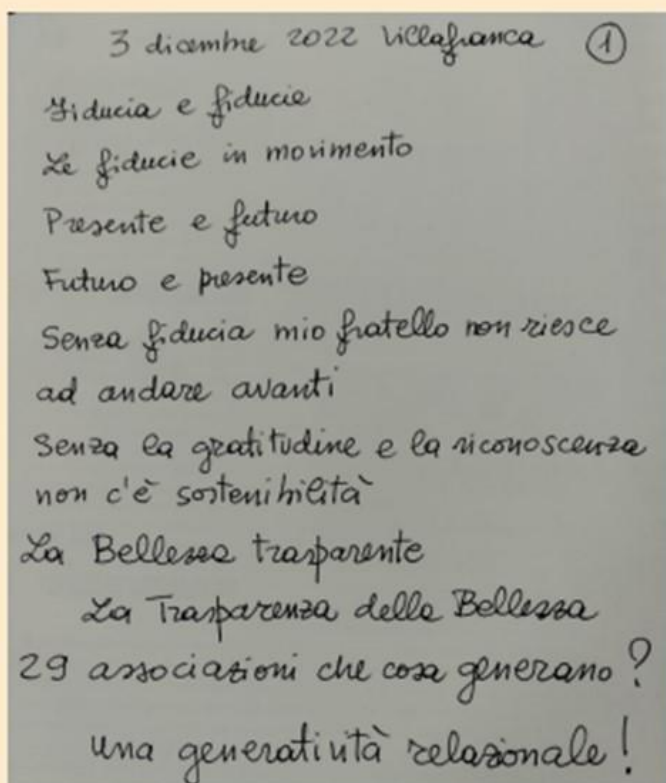 3 dicembre 2022 Villafranca ①
Fiducia e fiducie
Le fiducie in movimento
Presente e futuro
Futuro e presente
Senza fiducia mio fratello non riesce
ad andare avanti
Senza la gratitudine e la riconoscenza
non c'è sostenibilità
La Bellezza trasparente
La Trasparenza della Bellezza
29 associazioni che cosa generano?
una generatività relazionale!